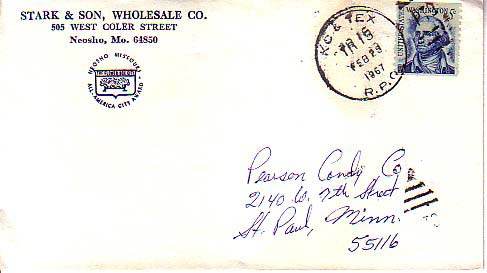 STARK & SON, WHOLESALE CO.
505 WEST COLER STREET
Neosho, Mo. 64850
NEOSHO MISSOURI
ALL-AMERICA CITY AWARD
KC & TEX
TR 15
FEB 28
1967
R.P.O.
UNITED STATES
WASHINGTON
Pearson Candy Co
2140 W. 7th Street
St. Paul, Minn.
55116